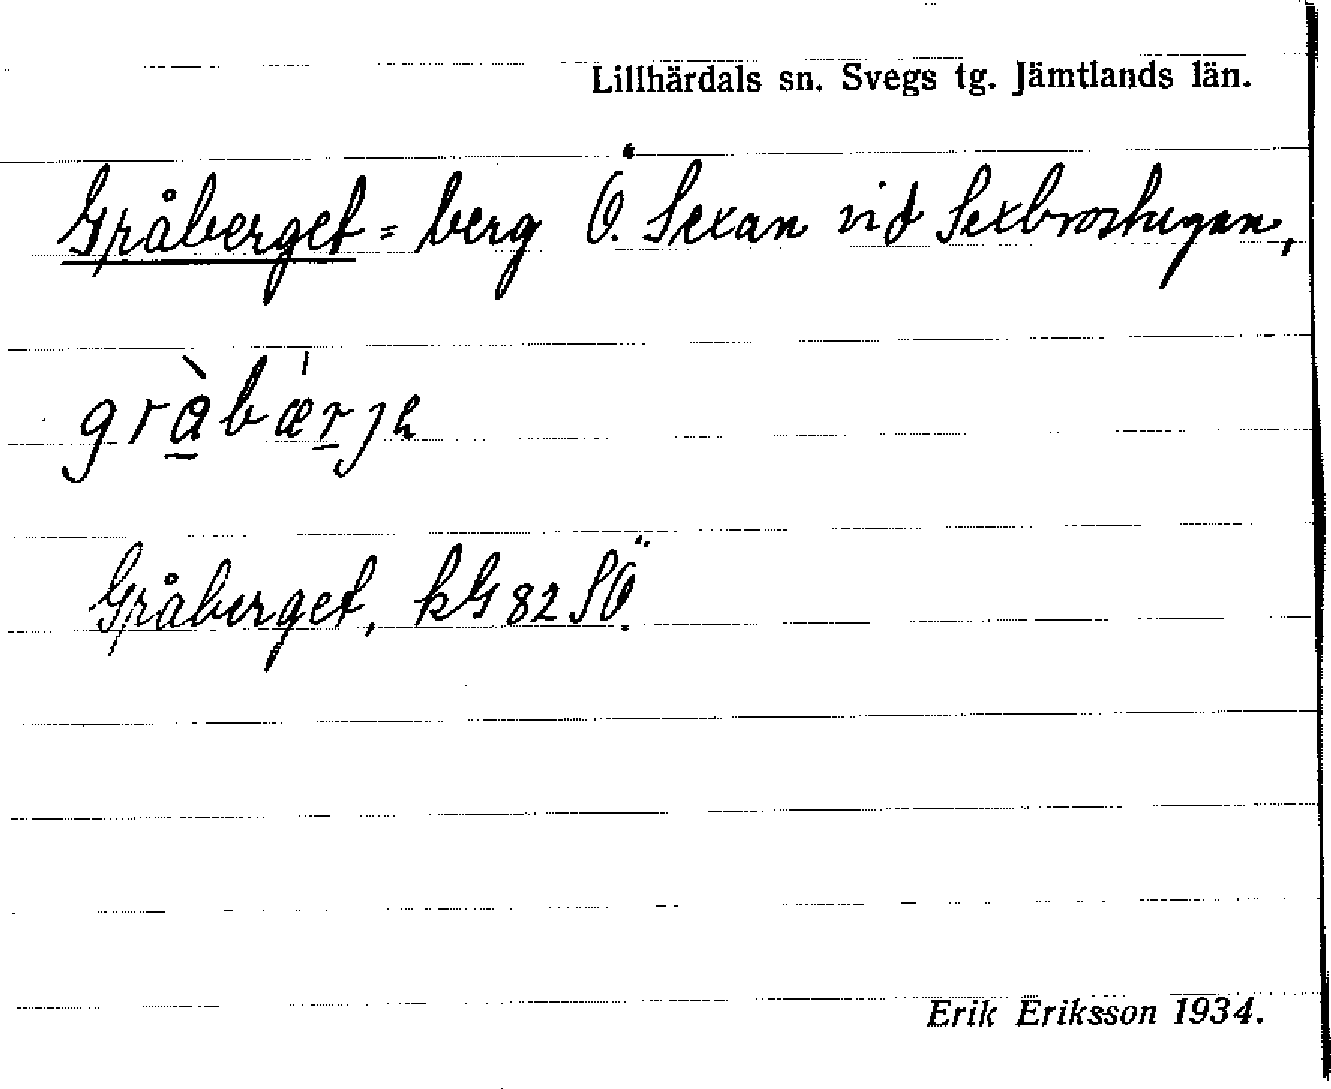 Lillhärdals sn. Svegs tg. Jämtlands län.
Gråberget = berg Ö. Sexan vid Sexbrostugan,
gràbæ̍rje
Gråberget, kG 82 SÖ.
Erik Eriksson 1934.